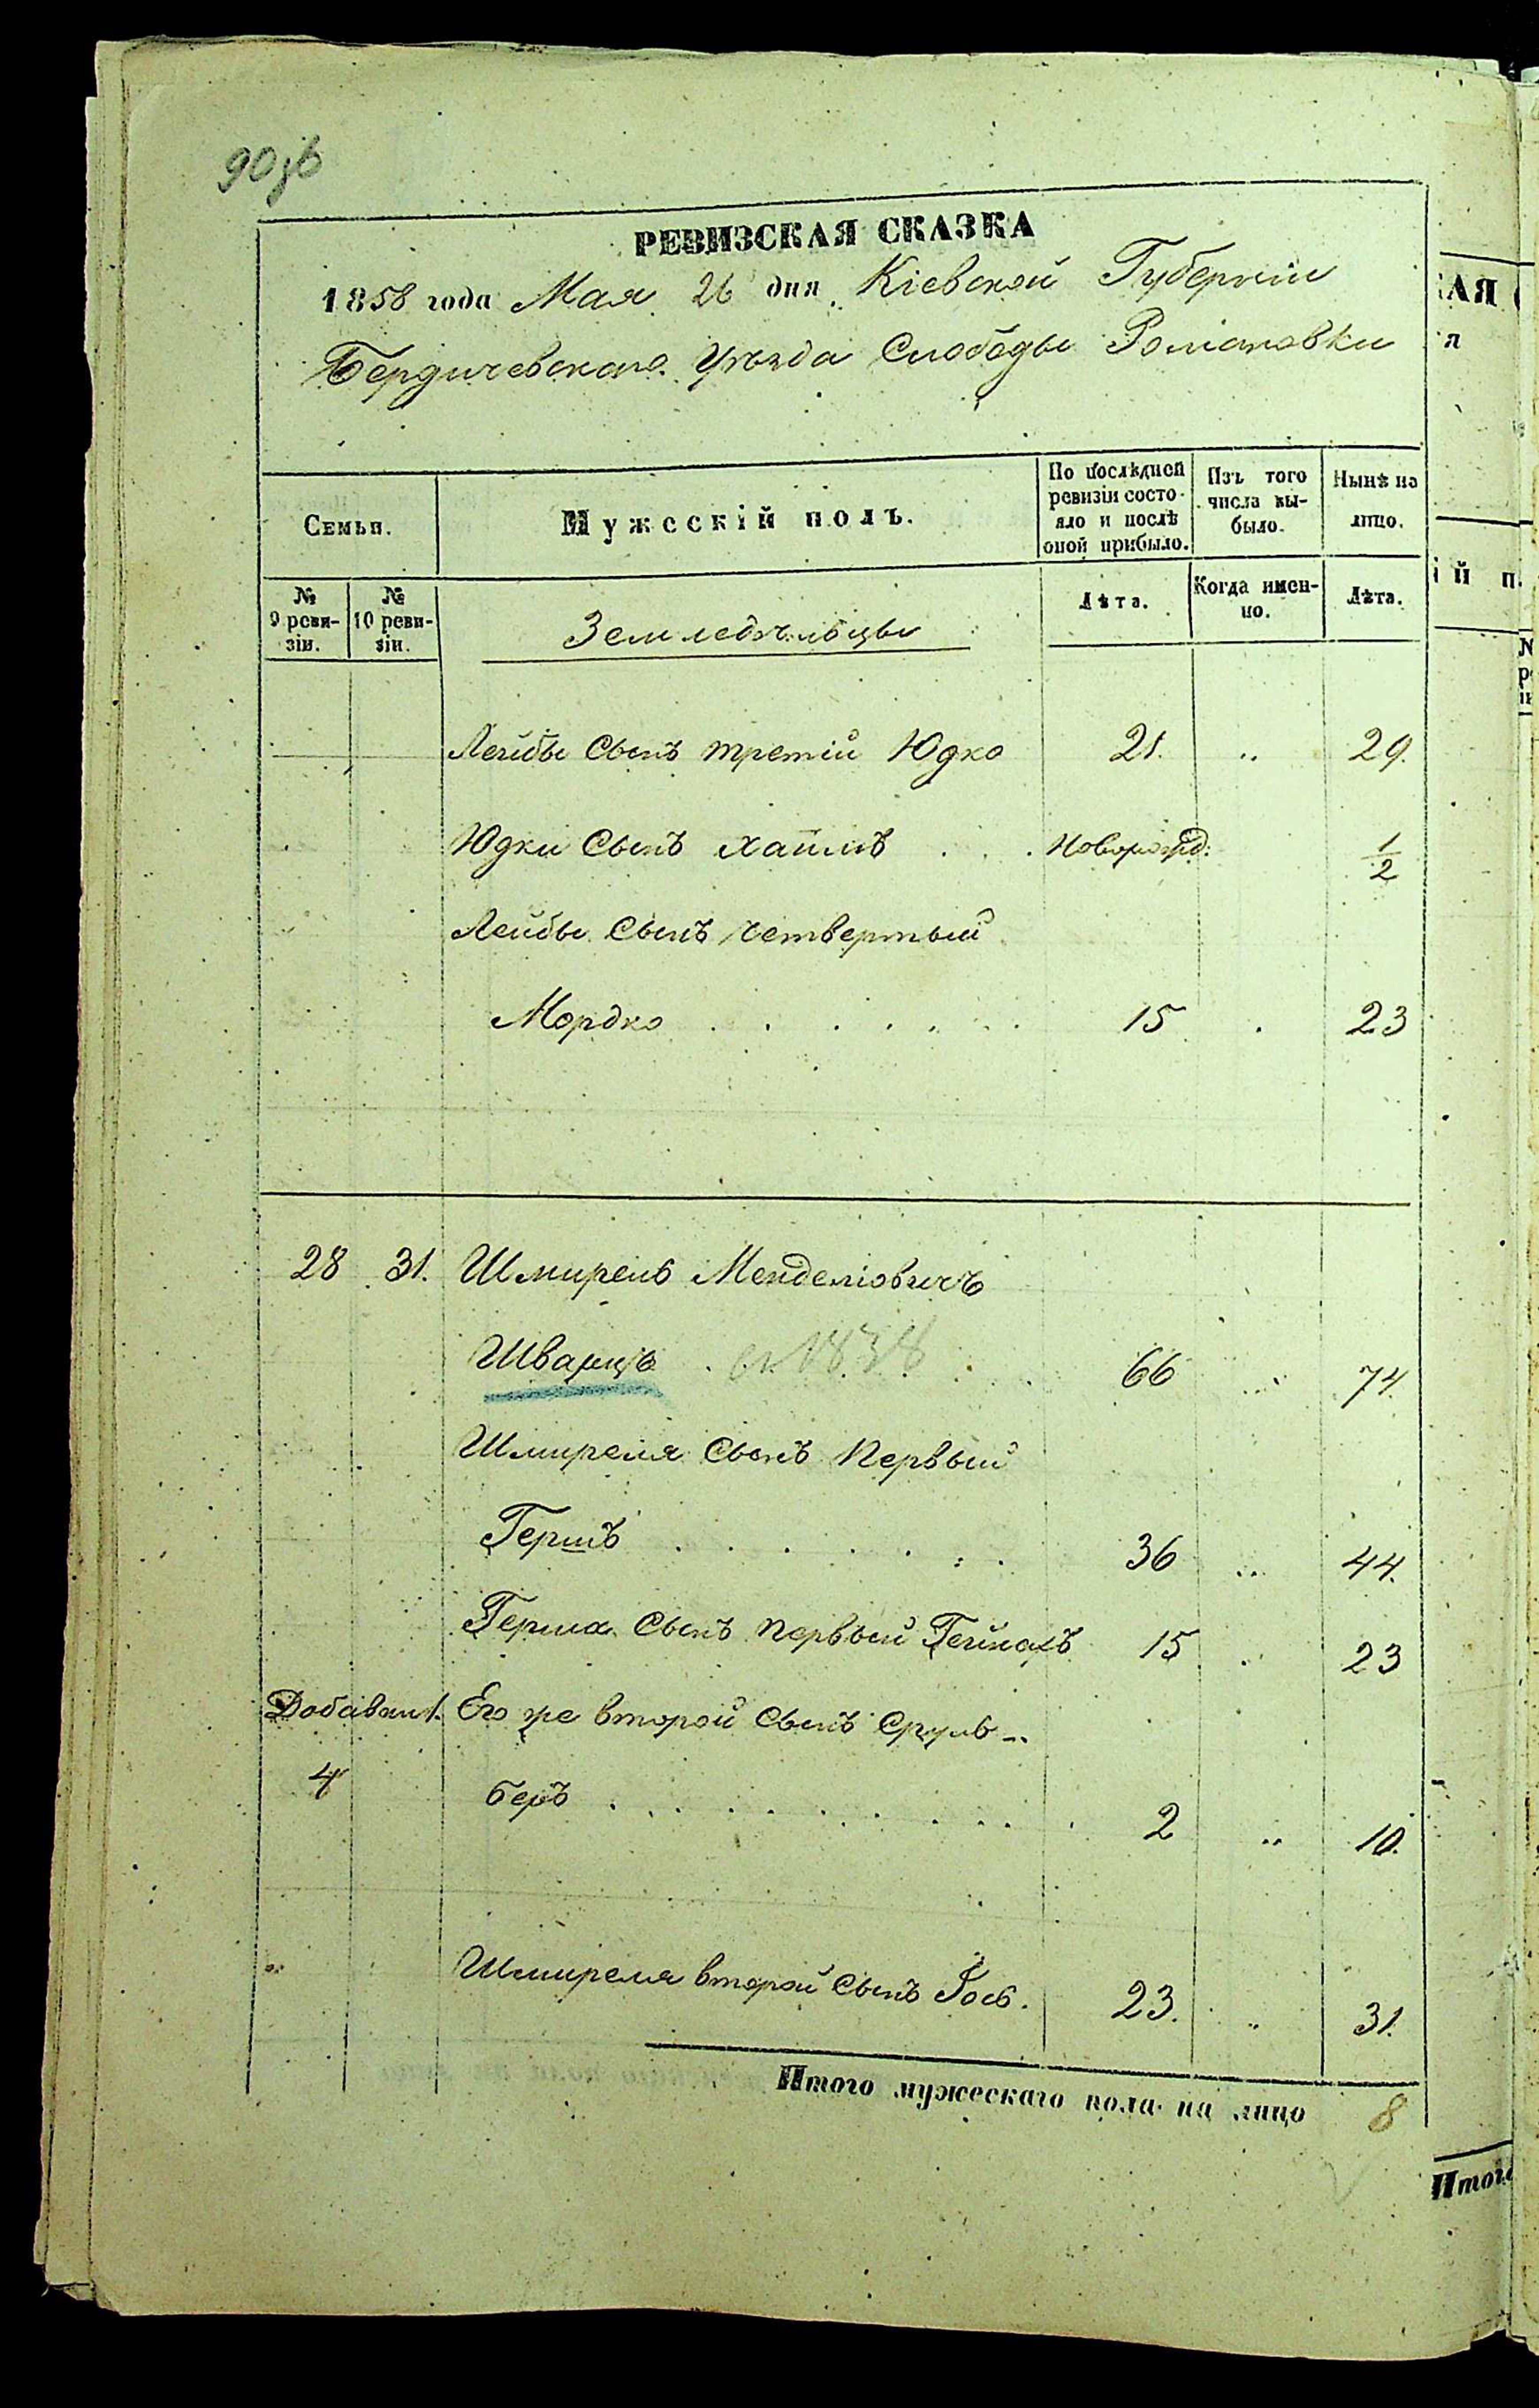 90зв
РЕВИЗСКАЯ СКАЗКА
1858 года Мая 26 дня Кіевской Губерніи
Бердичевскаго Уѣзда Слободы Романовки
Семьи.
Мужескій полъ.
По послѣдней ревизіи состо-
яло и послѣ
оной прибыло.
Изъ того
числа вы-
было.
Нынѣ на
лицо.
№
9 реви-
зіи.
№
10 реви-
зіи.
Земледѣльцы
Лѣта.
Когда имен-
но.
Лѣта.
Лейбы Сынъ третій Юдко 21. „ 29.
Юдки Сынъ Хаимъ . . . Новорожд: 1/2
Лейбы Сынъ четвертый
Мордко . . . . . . 15 . 23
28 31. Шмирель Менделіовичъ
Шварцъ . 1838 . . 66 „ 74.
Шмиреля Сынъ Первый
Гершъ . . . . . . . 36 „ 44.
Герша Сынъ первый Гейнахъ 15 . 23
Добавоч. Его же второй Сынъ Сруль-
4 беръ . . . . . . . . . 2 „ 10.
Шмиреля второй Сынъ Іось. 23. „ 31.
Итого мужескаго пола на лицо 8
КАЯ
я
ій п
№
Итого